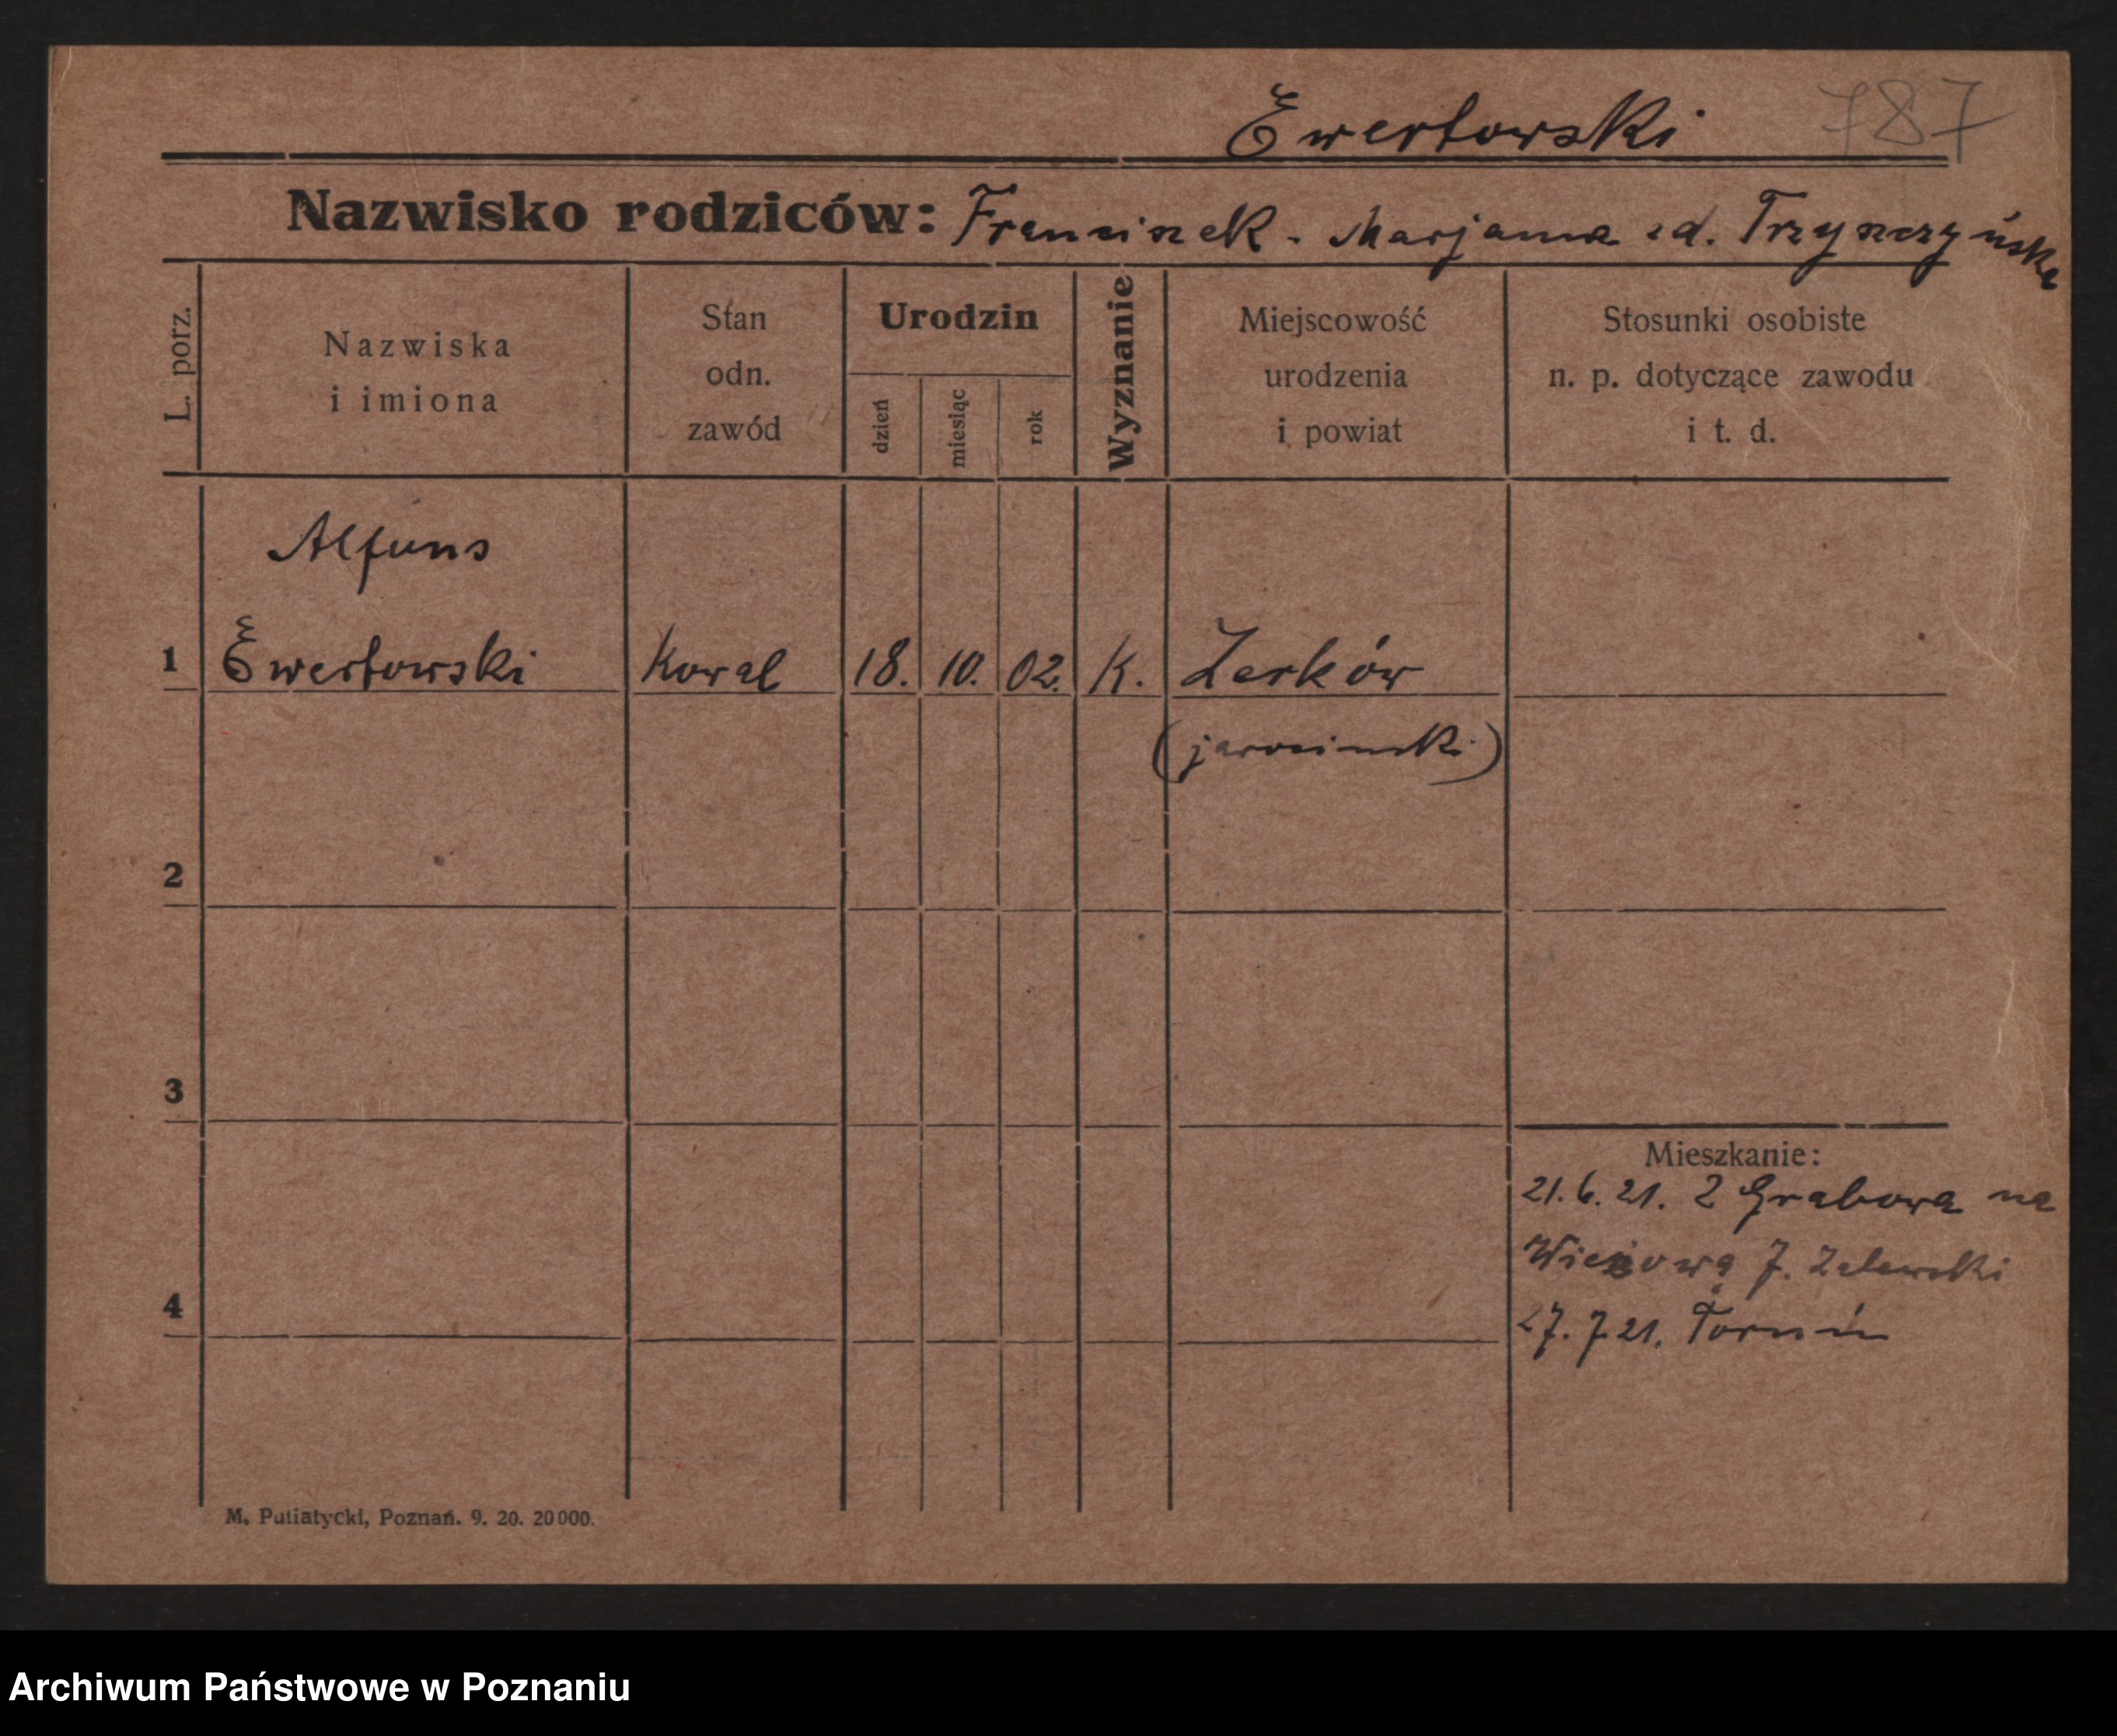 Ewertowski 787
Nazwisko rodziców: Franciszek - Marjanna zd. Trzynczyńska
L. porz.
Nazwiska
i imiona
Stan
odn.
zawód
Urodzin
dzień
miesiąc
rok
Wyznanie
Miejscowość
urodzenia
i powiat
Stosunki osobiste
n. p. dotyczące zawodu
i t. d.
Alfons
1 Ewertowski Kowal 18. 10. 02. K. Żerków
(jarociński)
2
3
Mieszkanie:
21.6.21. z Grabowa na
Wieżową 7. Zalewski
4
27.7.21. Toruń
M. Putiatycki, Poznań. 9. 20. 20000.
Archiwum Państwowe w Poznaniu